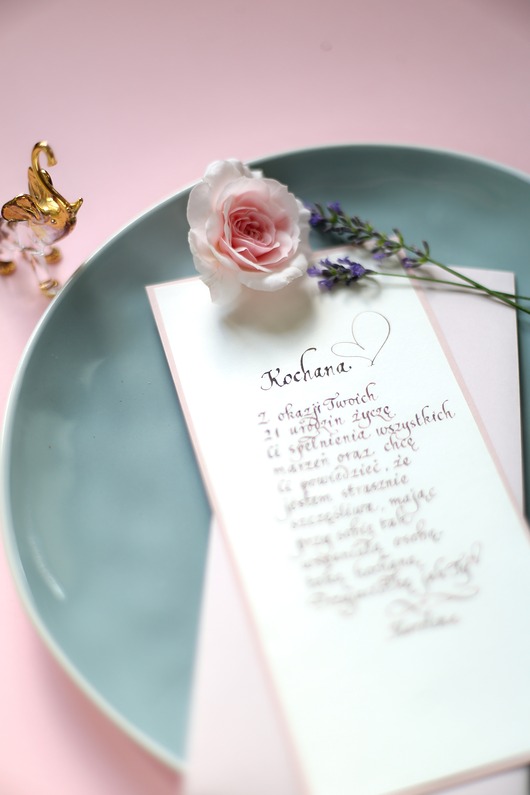 Kochana.
Z okazji Twoich
21 urodzin życzę
Ci spełnienia wszystkich
marzeń oraz chcę
Ci powiedzieć, że
jestem strasznie
szczęśliwa, mając
przy sobie tak
wspaniałą osobę.